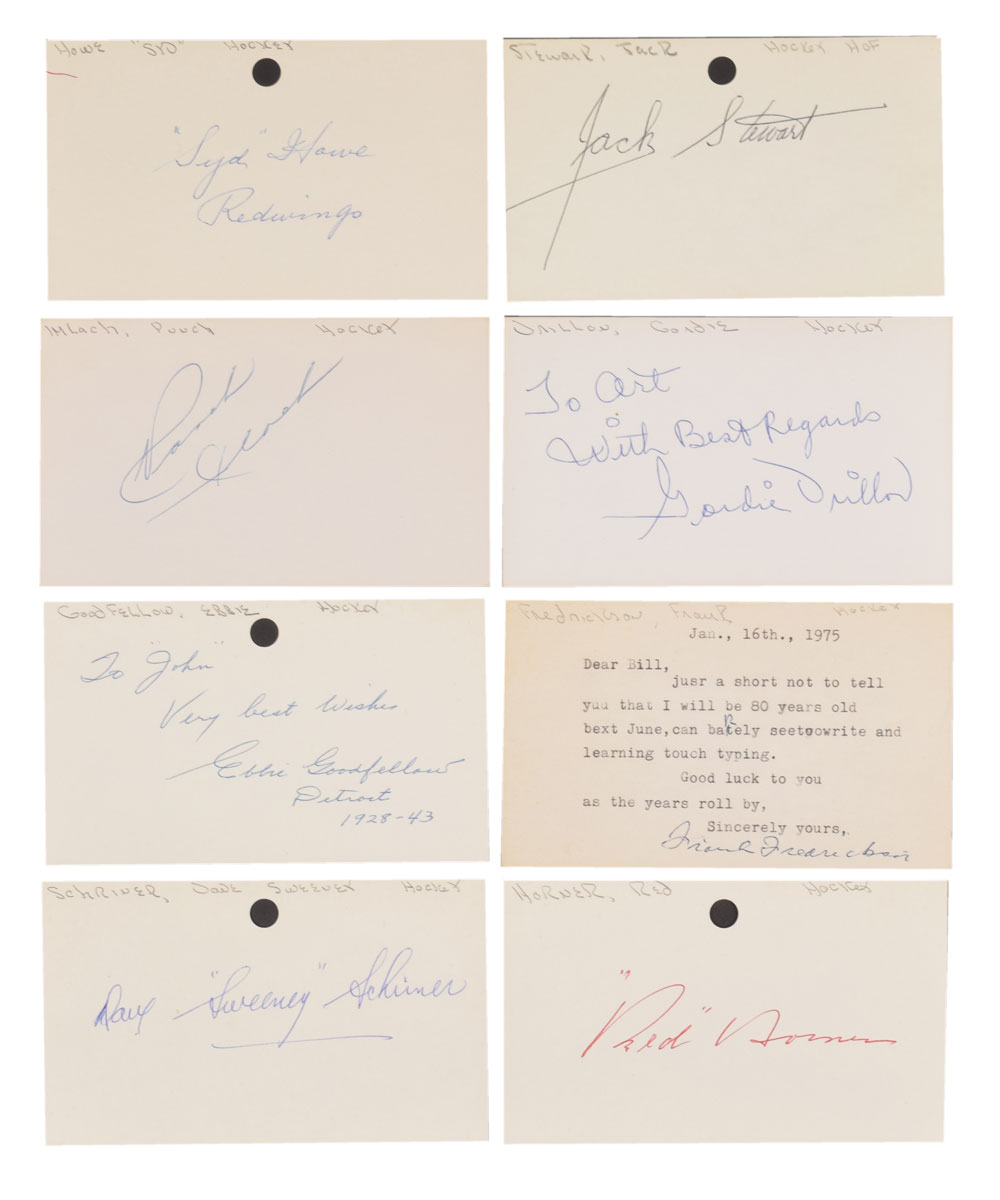 HOWE "SYD" HOCKEY
"Syd" Howe
Redwings
STEWART, JACK HOCKEY HOF
Jack Stewart
IMLACH, PUNCH HOCKEY
Punch Imlach
DRILLON, GORDIE HOCKEY
To Art
With Best Regards
Gordie Drillon
GOODFELLOW, EBBIE HOCKEY
To "John"
Very best Wishes
Ebbie Goodfellow
Detroit
1928-43
FREDRICKSON, FRANK HOCKEY
Jan., 16th., 1975
Dear Bill,
jusr a short not to tell
yuu that I will be 80 years old
bext June,can barely seetoowrite and
learning touch typing.
Good luck to you
as the years roll by,
Sincerely yours,.
Frank Fredrickson
SCHRINER, DAVE SWEENEY HOCKEY
Dave "Sweeney" Schriner
HORNER, RED HOCKEY
"Red" Horner